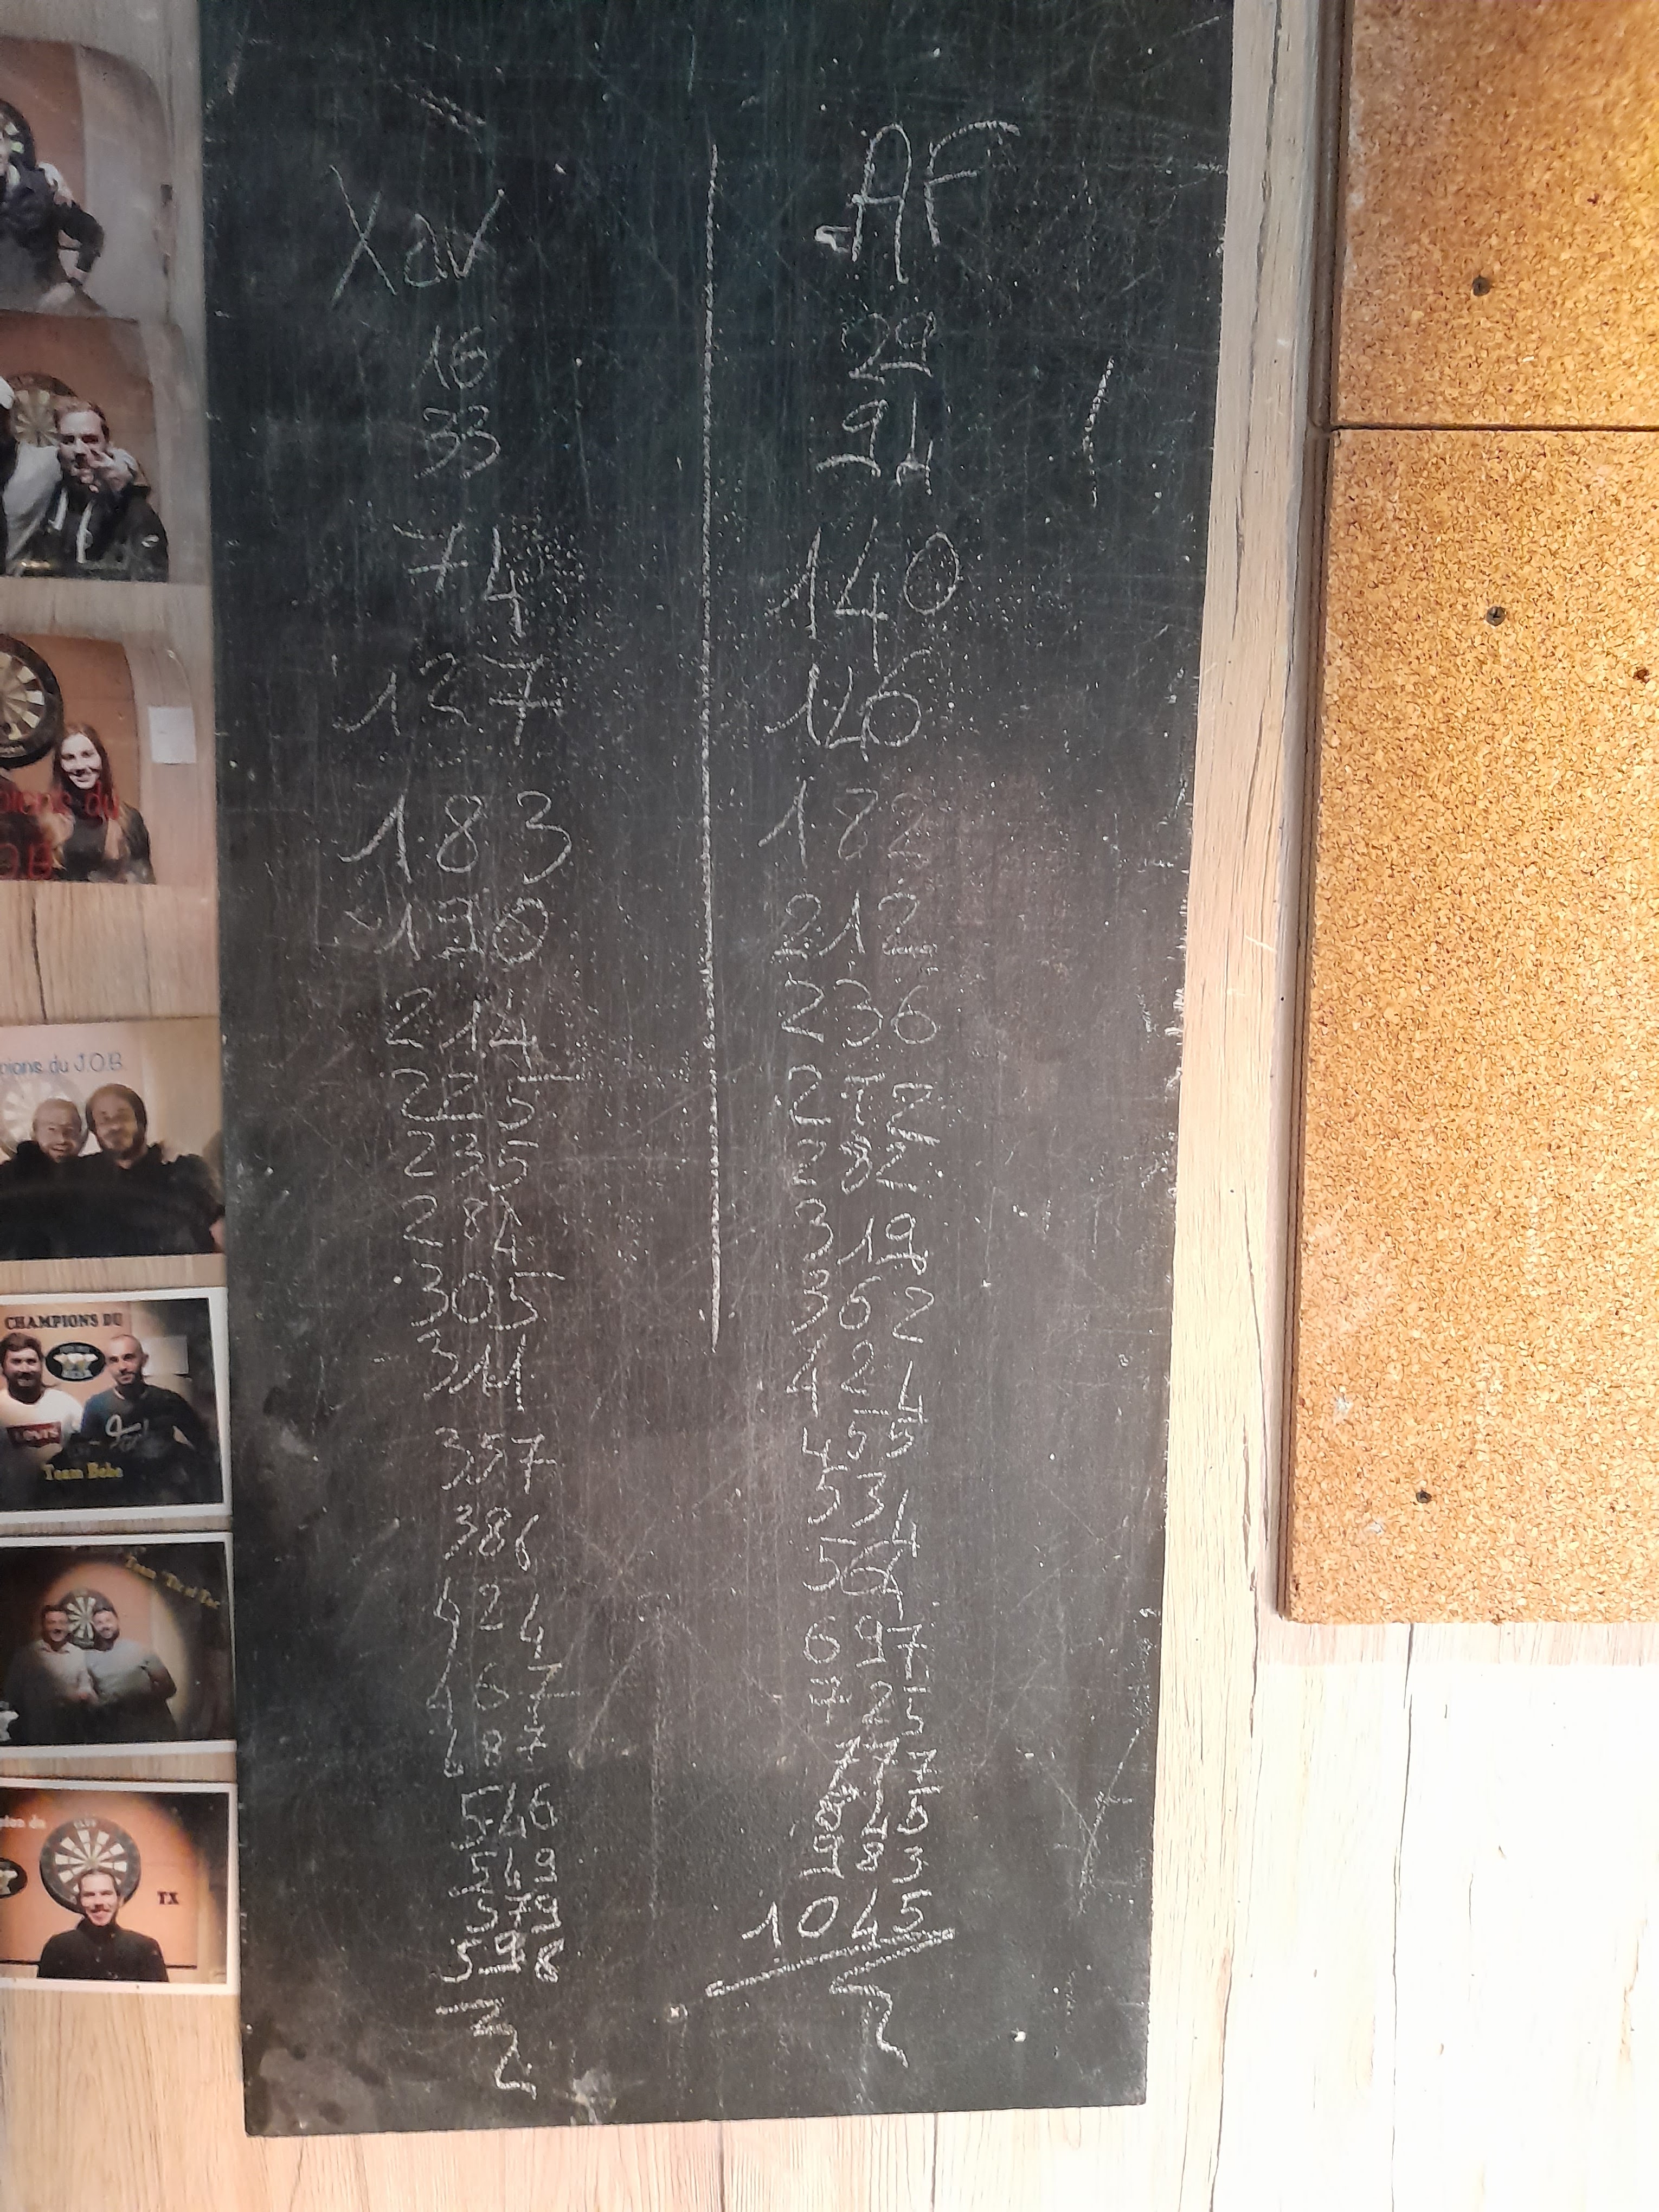 Xav
AF
16
29
33
94
74
140
137
146
183
182
190
212
214
236
225
272
235
282
284
319
305
362
311
424
357
455
386
534
424
564
467
697
487
725
546
777
549
826
579
983
598
1045
pions du J.O.B.
CHAMPIONS DU
Levi's
Team Bebe
Team "Tic et Tac"
TX